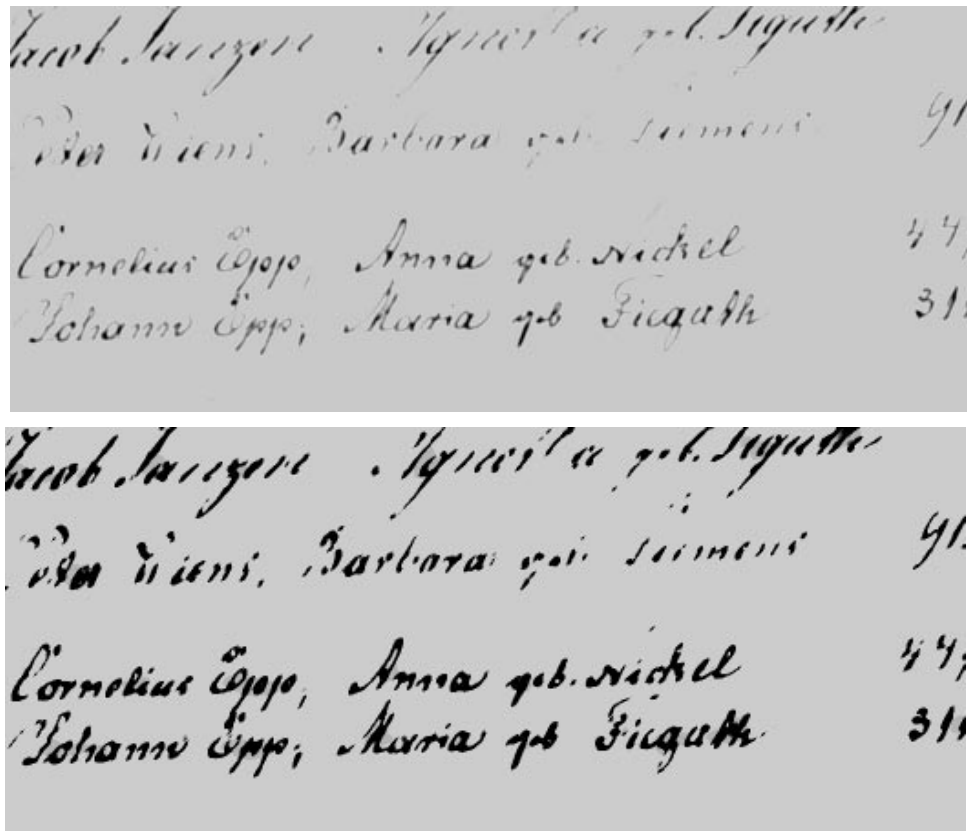 Jacob Janzen Agnes geb. Fieguth
Peter Wiens, Barbara geb. Siemens 91
Cornelius Epp, Anna geb. Nickel 44
Johann Epp, Maria geb Fieguth 31
Jacob Janzen Agnes geb. Fieguth
Peter Wiens, Barbara geb. Siemens 91
Cornelius Epp, Anna geb. Nickel 44
Johann Epp, Maria geb Fieguth 31